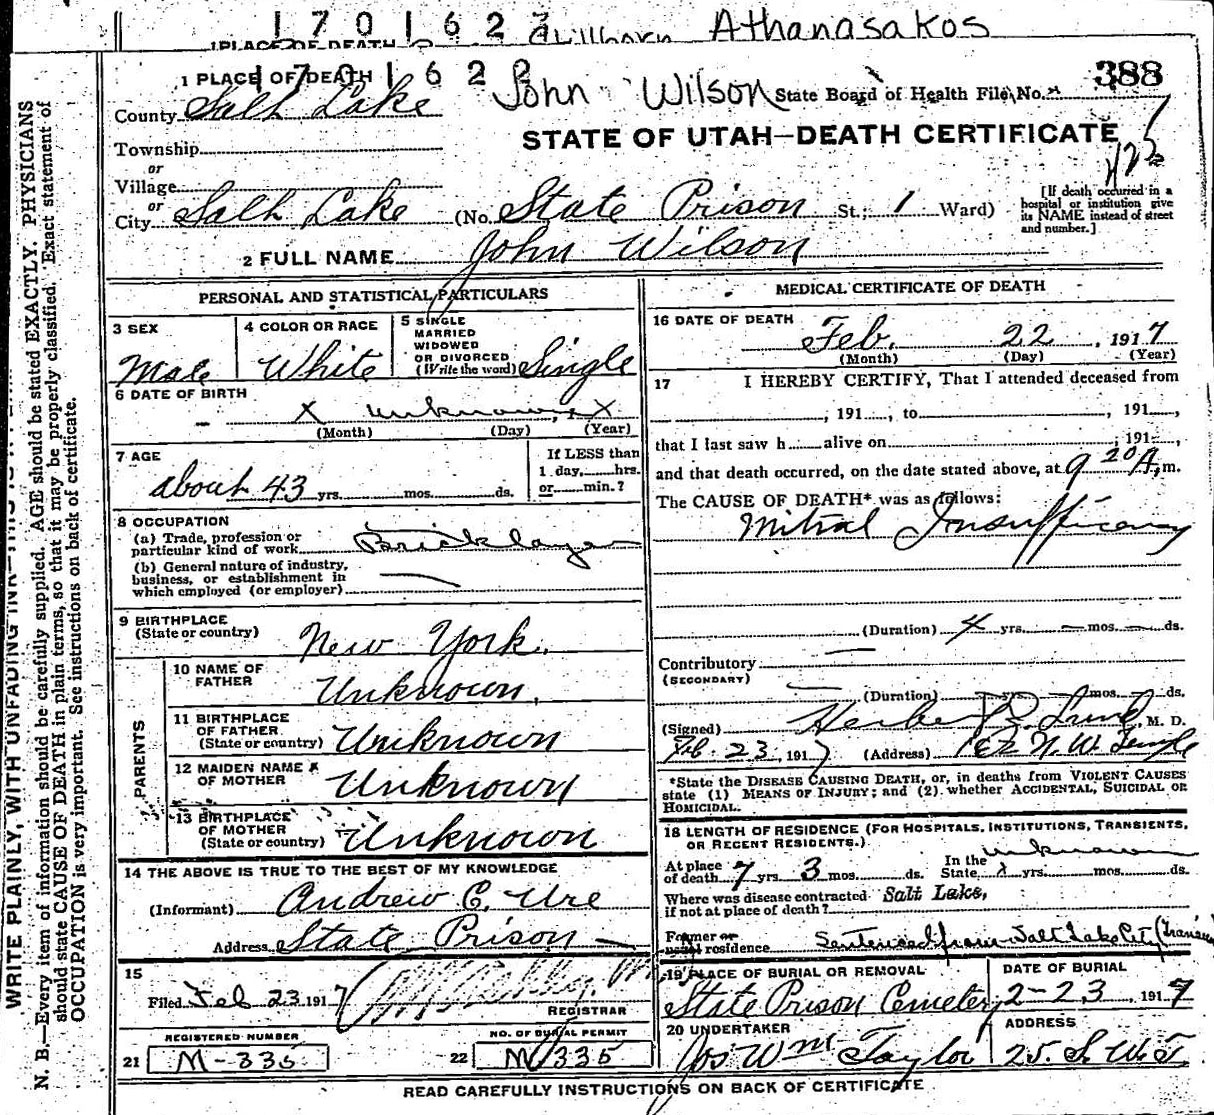 1701627
1 PLACE OF DEATH Stillborn Athanasakos
1 PLACE OF DEATH 1701622 John Wilson State Board of Health File No. 388
County Salt Lake
STATE OF UTAH—DEATH CERTIFICATE
Township
or
Village
or
City Salt Lake (No. State Prison St.; 1 Ward)
[If death occurred in a hospital or institution give its NAME instead of street and number.]
2 FULL NAME John Wilson
PERSONAL AND STATISTICAL PARTICULARS
3 SEX Male
4 COLOR OR RACE White
5 SINGLE
MARRIED
WIDOWED
OR DIVORCED
(Write the word) Single
6 DATE OF BIRTH
X unknown, X
(Month) (Day) (Year)
7 AGE
about 43 yrs. mos. ds.
If LESS than
1 day, hrs.
or min.?
8 OCCUPATION
(a) Trade, profession or
particular kind of work Bricklayer
(b) General nature of industry,
business, or establishment in
which employed (or employer)
9 BIRTHPLACE
(State or country) New York.
PARENTS
10 NAME OF
FATHER Unknown.
11 BIRTHPLACE
OF FATHER
(State or country) Unknown
12 MAIDEN NAME
OF MOTHER Unknown
13 BIRTHPLACE
OF MOTHER
(State or country) Unknown
14 THE ABOVE IS TRUE TO THE BEST OF MY KNOWLEDGE
(Informant) Andrew C. Ure
Address State Prison
15
Filed Feb 23 1917
REGISTRAR
REGISTERED NUMBER
21 M-335
NO. OF BURIAL PERMIT
22 M 335
MEDICAL CERTIFICATE OF DEATH
16 DATE OF DEATH
Feb. 22, 1917
(Month) (Day) (Year)
17 I HEREBY CERTIFY, That I attended deceased from
, 191 , to , 191 ,
that I last saw h alive on , 191 ,
and that death occurred, on the date stated above, at 9 20 A, m.
The CAUSE OF DEATH* was as follows:
Mitral Insufficancy
(Duration) 4 yrs. — mos. — ds.
Contributory —
(SECONDARY)
(Duration) yrs. mos. ds.
(Signed) Lund, M. D.
Feb. 23, 1917 (Address) N. W. Temple
*State the DISEASE CAUSING DEATH, or, in deaths from VIOLENT CAUSES
state (1) MEANS OF INJURY; and (2) whether ACCIDENTAL, SUICIDAL OR
HOMICIDAL.
18 LENGTH OF RESIDENCE (FOR HOSPITALS, INSTITUTIONS, TRANSIENTS,
OR RECENT RESIDENTS.)
At place
of death 7 yrs. 3 mos. ds. In the
State X yrs. mos. ds. unknown
Where was disease contracted
if not at place of death? Salt Lake,
Former or
usual residence Sentenced from Salt Lake City
19 PLACE OF BURIAL OR REMOVAL
State Prison Cemetery
DATE OF BURIAL
2-23, 1917
20 UNDERTAKER
Jos Wm Taylor
ADDRESS
25. S. W. T.
READ CAREFULLY INSTRUCTIONS ON BACK OF CERTIFICATE
WRITE PLAINLY, WITH UNFADING INK—THIS IS
N. B.—Every item of information should be carefully supplied. AGE should be stated EXACTLY. PHYSICIANS
should state CAUSE OF DEATH in plain terms, so that it may be properly classified. Exact statement of
OCCUPATION is very important. See instructions on back of certificate.